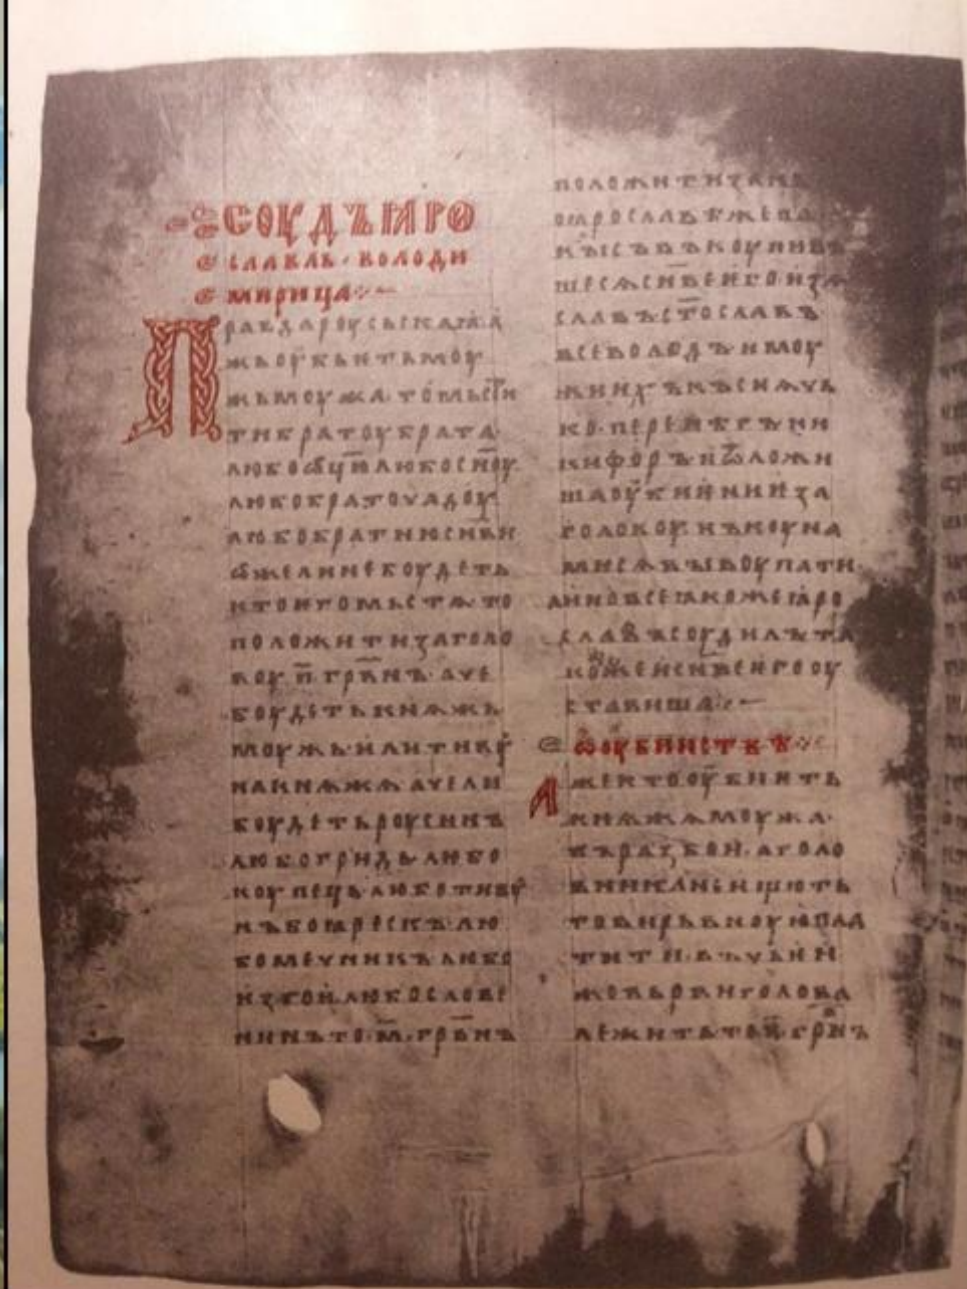 СОУДЪ ꙖРО
СЛАВЛЬ · ВОЛОДИ
МИРИЦА
Правда роусьскаꙗ · а
жь оубьить моу
жь моужа · то мьсти
ти братоу брата
любо ѡц҃ю любо сн҃оу
любо братоучадоу
любо братню сн҃ви
ѡже ли не боудеть
кто ѥго мьстѧ то
положити за голо
воу п҃ гр҃внъ · аче
боудеть кнѧжь
моужь · или тивоу
на кнѧжѧ аче ли
боудеть роусинъ
любо гридь · любо
коупець любо тивоу
нъ боꙗрескъ · лю
бо мечникъ любо
изгои · любо слове
нинъ то · м҃ · гр҃внъ
положити за нь
ꙗрославѣ же
кы съвъкоупивъ
шесѧ сн҃ве ѥго изѧ
славъ ст҃ославъ
всеволодъ и моу
жи ихъ къснѧчь
ко · перенѣгъ ни
кифоръ и ѿложи
ша оубиѥниѥ за
головоу нъ коуна
ми сѧ выкоупати
а ино все ꙗкоже ꙗро
славъ соудилъ та
коже и сн҃ве ѥго оу
ставиша
ѡ оубииствѣ
Аже кто оубиить
кнѧжа моужа
въ разбои · а голо
вника не ищють
то вирьвноую пла
тити · въ чьѥи
же вьрви голова
лежить то п҃ · гр҃внъ